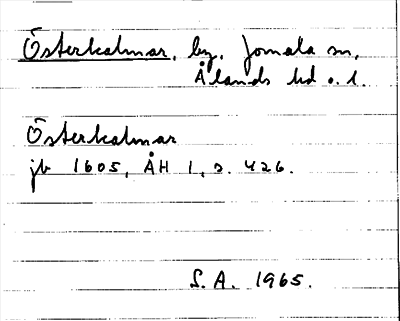 Österkalmar, by, Jomala sn,
Ålands hd o. l.
Österkalmar
jb 1605, ÅH 1, s. 426.
S. A. 1965.